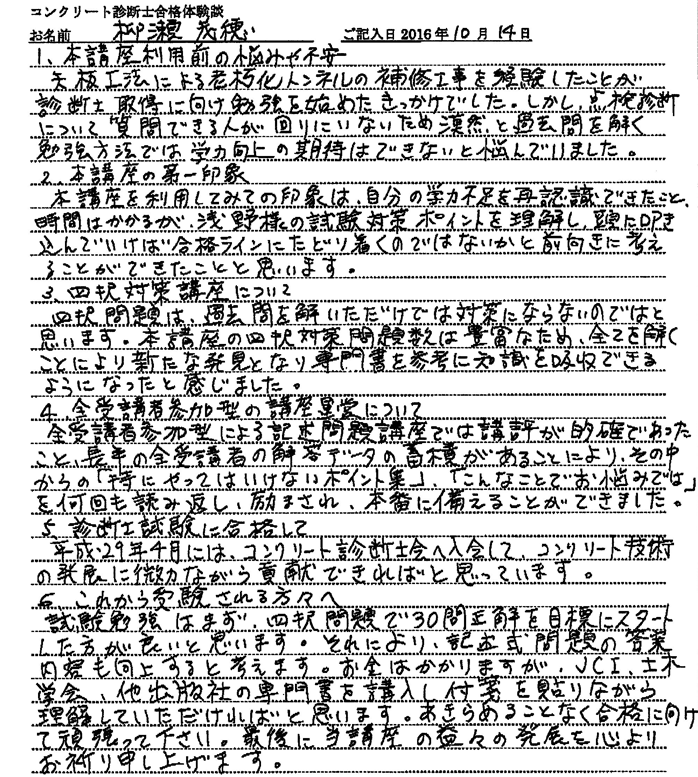 コンクリート診断士合格体験談
お名前 柳瀬 茂穂 ご記入日 2016年10月14日
1、本講座利用前の悩みや不安
矢板工法による老朽化トンネルの補修工事を経験したことが
診断士取得に向け勉強を始めたきっかけでした。しかし、点検診断
について質問できる人が回りにいないため漠然と過去問を解く
勉強方法では学力向上の期待はできないと悩んでいました。
2、本講座の第一印象
本講座を利用してみての印象は、自分の学力不足を再認識できたこと、
時間はかかるが、浅野様の試験対策ポイントを理解し、頭に叩き
込んでいけば合格ラインにたどり着くのではないかと前向きに考え
ることができたことと思います。
3、四択対策講座について
四択問題は、過去問を解いただけでは対策にならないのではと
思います。本講座の四択対策問題数は豊富なため、全てを解く
ことにより新たな発見となり専門書を参考に知識を吸収できる
ようになったと感じました。
4、全受講者参加型の講座運営について
全受講者参加型による記述問題講座では講評が的確であった
こと、長年の全受講者の解答データの蓄積があることにより、その中
からの「特にやってはいけないポイント集」、「こんなことでお悩みでは」
を何回も読み返し、励まされ、本番に備えることができました。
5、診断士試験に合格して
平成29年4月には、コンクリート診断士会へ入会して、コンクリート技術
の発展に微力ながら貢献できればと思っています。
6、これから受験される方々へ
試験勉強はまず、四択問題で30問正解を目標にスタート
した方が良いと思います。それにより、記述式問題の答案
内容も向上すると考えます。お金はかかりますが、JCI、土木
学会、他出版社の専門書を購入し付箋を貼りながら
理解していただければと思います。あきらめることなく合格に向け
て頑張って下さい。最後に当講座の益々の発展を心より
お祈り申し上げます。